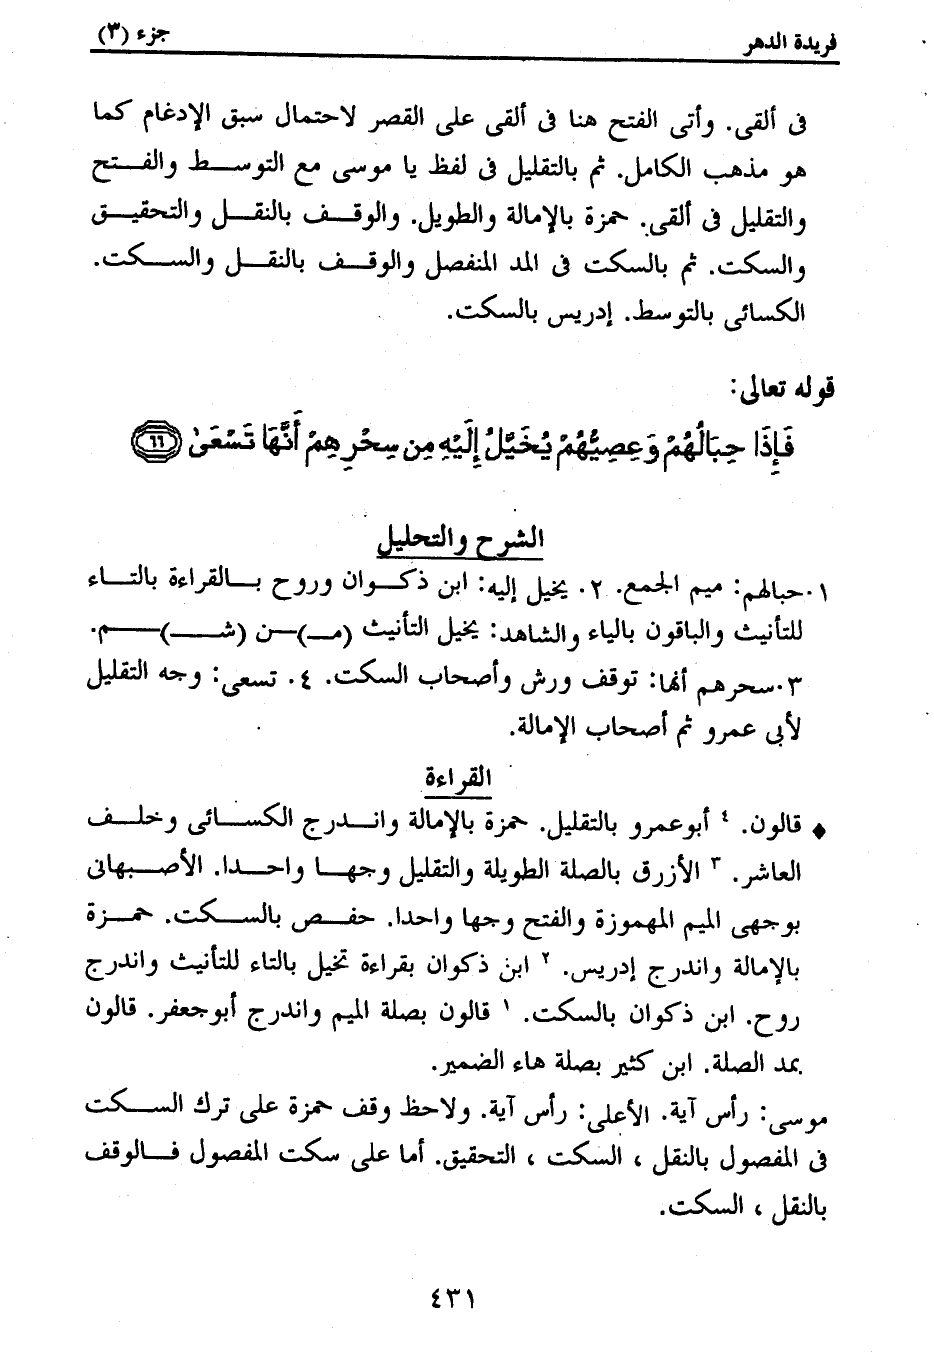 فريدة الدهر
جزء (٣)
فى ألقى. وأتى الفتح هنا فى ألقى على القصر لاحتمال سبق الإدغام كما
هو مذهب الكامل. ثم بالتقليل فى لفظ يا موسى مع التوسط والفتح
والتقليل فى ألقى. حمزة بالإمالة والطويل. والوقف بالنقل والتحقيق
والسكت. ثم بالسكت فى المد المنفصل والوقف بالنقل والسكت.
الكسائى بالتوسط. إدريس بالسكت.
قوله تعالى:
فَإِذَا حِبَالُهُمْ وَعِصِيُّهُمْ يُخَيَّلُ إِلَيْهِ مِن سِحْرِهِمْ أَنَّهَا تَسْعَىٰ ٦٦
الشرح والتحليل
١. حبالهم: ميم الجمع. ٢. يخيل إليه: ابن ذكوان وروح بالقراءة بالتاء
للتأنيث والباقون بالياء والشاهد: يخيل التأنيث (مـ)ـن (شـ)ـم.
٣. سحرهم أنها: توقف ورش وأصحاب السكت. ٤. تسعى: وجه التقليل
لأبى عمرو ثم أصحاب الإمالة.
القراءة
♦ قالون. ٤ أبوعمرو بالتقليل. حمزة بالإمالة واندرج الكسائى وخلف
العاشر. ٣ الأزرق بالصلة الطويلة والتقليل وجها واحدا. الأصبهانى
بوجهى الميم المهموزة والفتح وجها واحدا. حفص بالسكت. حمزة
بالإمالة واندرج إدريس. ٢ ابن ذكوان بقراءة تخيل بالتاء للتأنيث واندرج
روح. ابن ذكوان بالسكت. ١ قالون بصلة الميم واندرج أبوجعفر. قالون
بمد الصلة. ابن كثير بصلة هاء الضمير.
موسى: رأس آية. الأعلى: رأس آية. ولاحظ وقف حمزة على ترك السكت
فى المفصول بالنقل ، السكت ، التحقيق. أما على سكت المفصول فالوقف
بالنقل ، السكت.
٤٣١